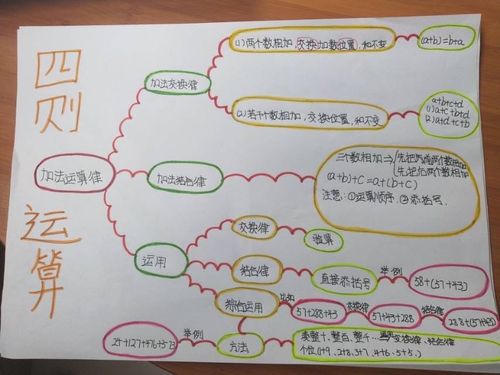 四则
运算
加法运算律
加法交换律
(1)两个数相加,交换加数位置,和不变
(a+b)=b+a
(2)若干个数相加,交换位置,和不变
a+b+c+d
加法结合律
三个数相加⇒
先把前两个数相加
先把后两个数相加
(a+b)+c=a+(b+c)
注意:①运算顺序 ②添括号.
运用
交换律
验算
结合律
直接添括号
举例
58+(57+43)
综合运用
57+288+43
交换律
57+43+288
结合律
288+(57+43)
方法
举例
凑整十、整百、整千
交换律、结合律